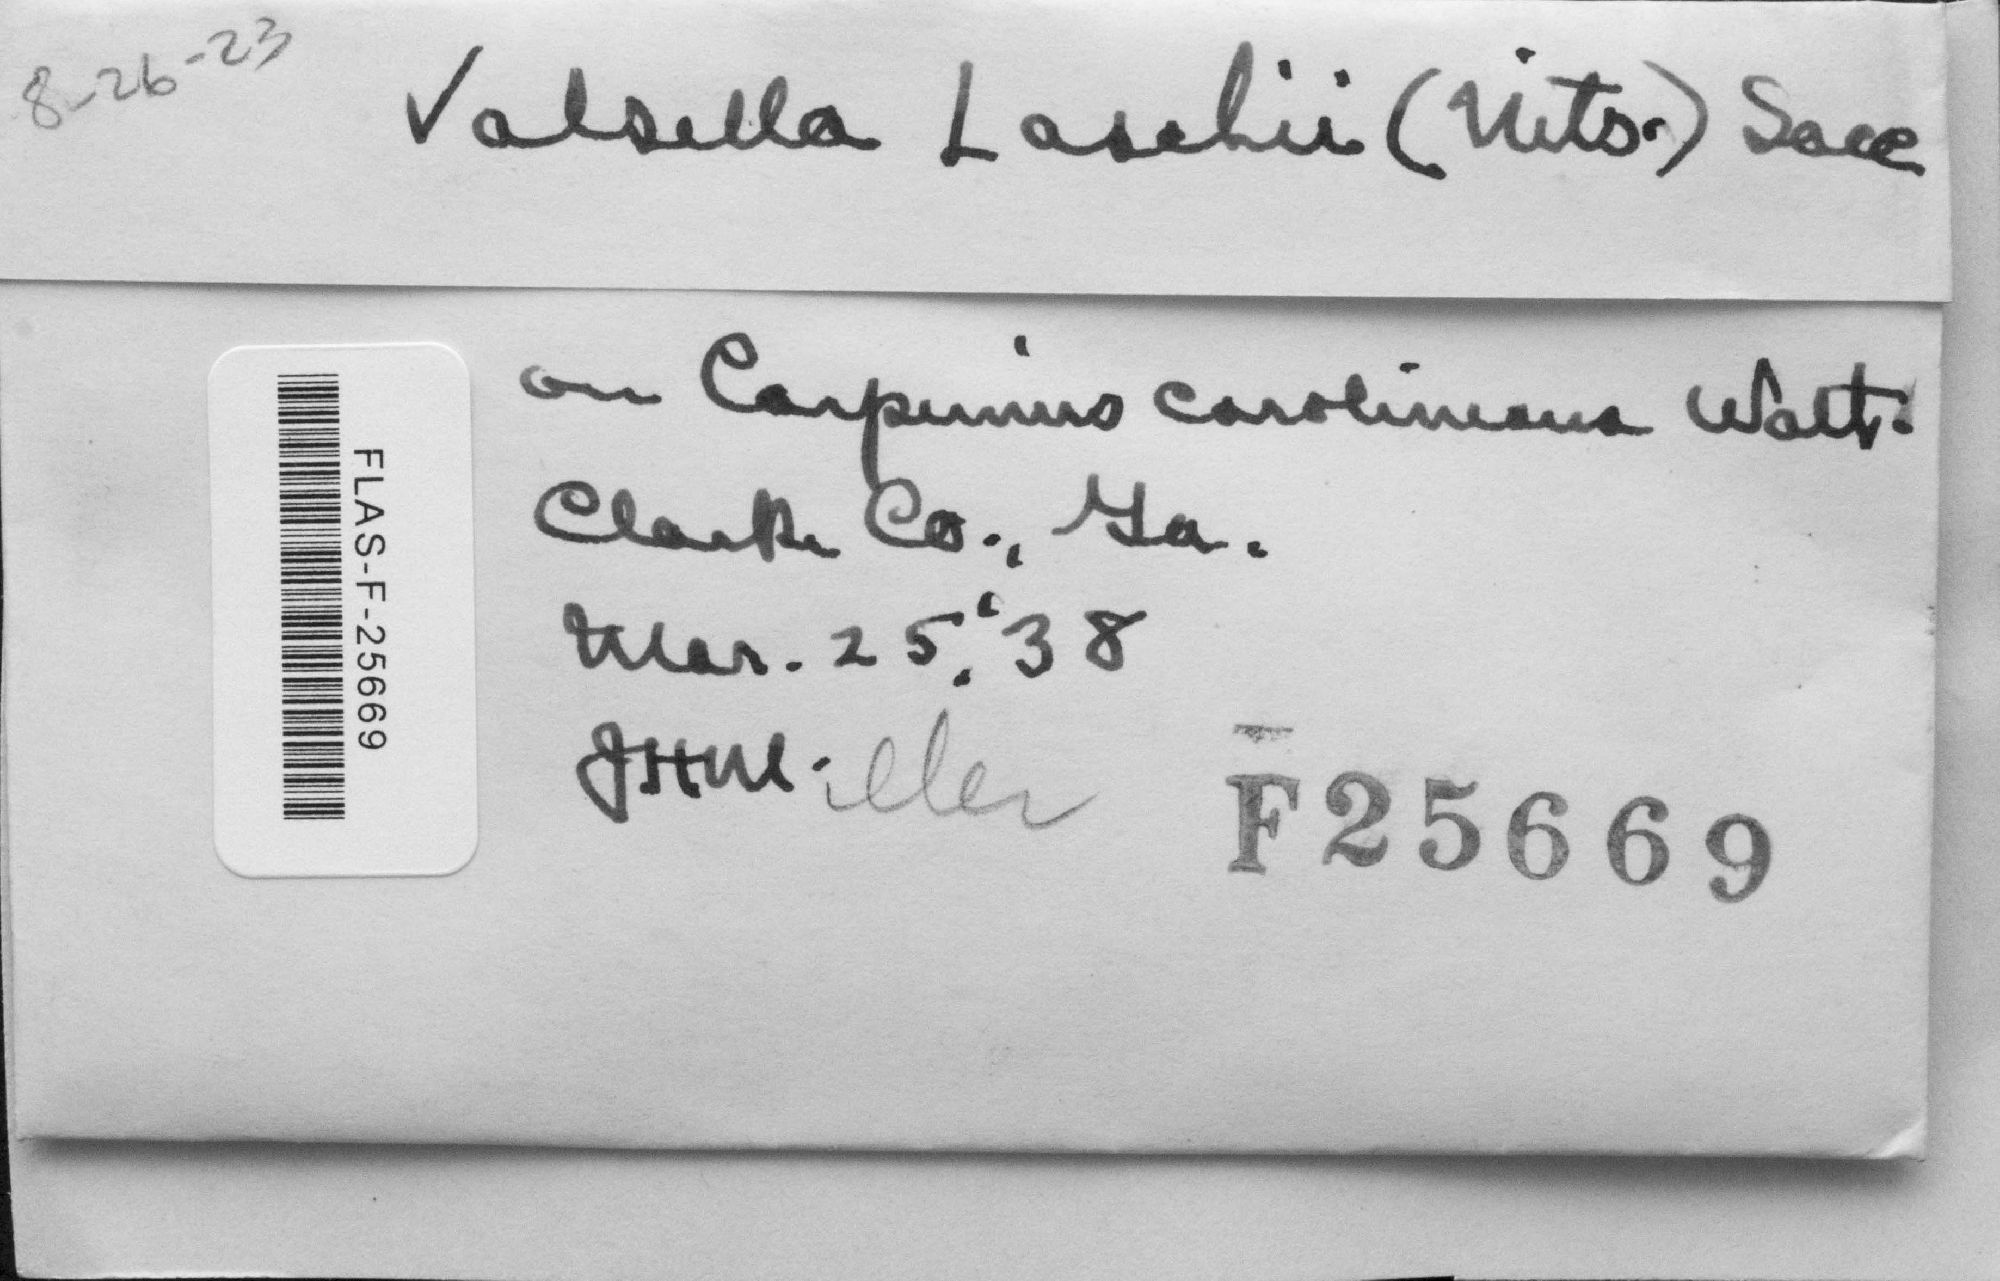 8-26-23
Valsella Laschii (Nits.) Sacc
on Carpinus caroliniana Walt.
Clarke Co., Ga.
Mar. 25, '38
JHMiller
F25669
FLAS-F-25669